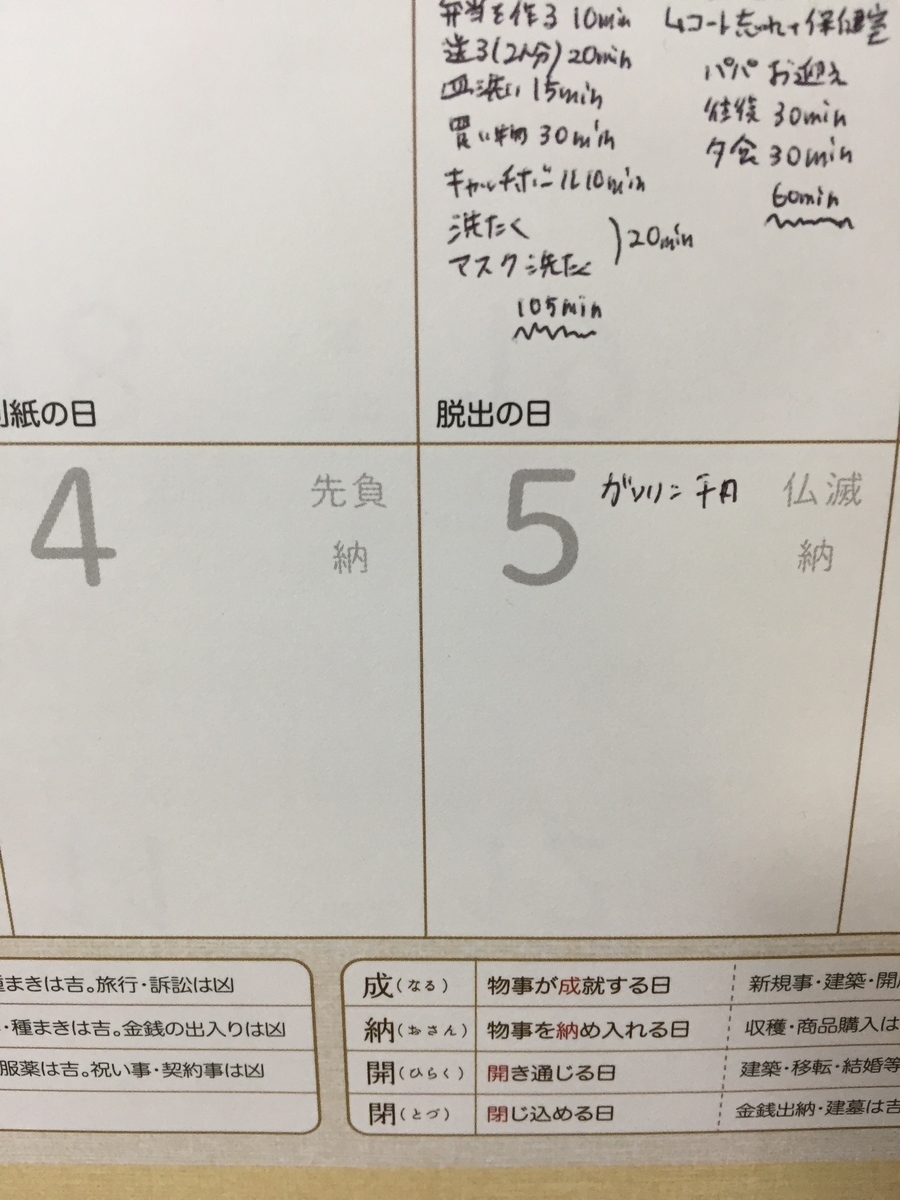 弁当を作る 10min
送る(2人分) 20min
皿洗い 15min
買い物 30min
キャッチボール 10min
洗たく
マスク洗たく
20min
105min
コート忘れ→保健室
パパお迎え
往復 30min
夕食 30min
60min
紙の日
脱出の日
4 先負
納
5 ガソリン 仏滅
納
種まきは吉。旅行・訴訟は凶
・種まきは吉。金銭の出入りは凶
服薬は吉。祝い事・契約事は凶
成(なる) 物事が成就する日 新規事・建築・開
納(おさん) 物事を納め入れる日 収穫・商品購入は
開(ひらく) 開き通じる日 建築・移転・結婚等
閉(とづ) 閉じ込める日 金銭出納・建墓は吉